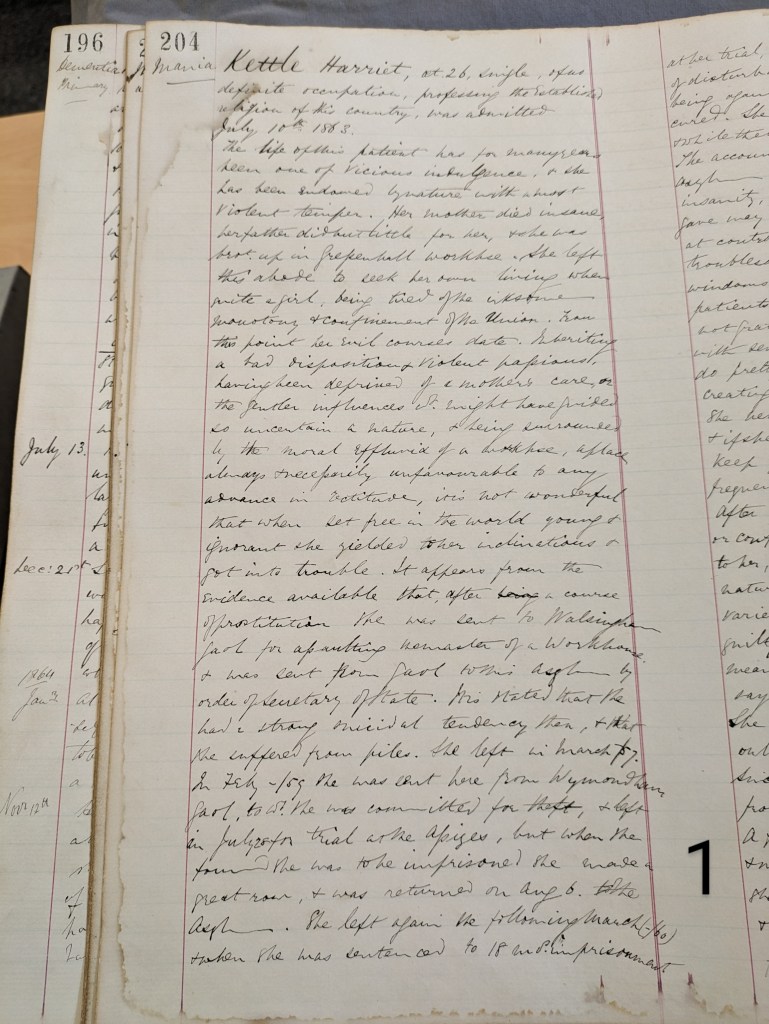 196
204
Dementia
Primary
July 13.
Dec: 21st
1864
Jany
Novr 12th
Mania
Kettle Harriet, æt 26, single, of no
definite occupation, professing the Established
religion of this country, was admitted
July 10th 1863.
The life of this patient has for many years
been one of vicious indulgence, & she
has been endowed by nature with a most
violent temper. Her mother died insane,
her father did but little for her, & she was
brot. up in Gressenhall workhse. She left
this abode to seek her own living when
quite a girl, being tired of the irksome
monotony & confinement of the Union. From
this point her evil courses date. Inheriting
a bad disposition & violent passions,
having been deprived of a mother's care, or
the gentler influences wh. might have guided
so uncertain a nature, & being surrounded
by the moral effluvia of a workhse, a place
always & necessarily unfavourable to any
advance in rectitude, it is not wonderful
that when set free in the world young &
ignorant she yielded to her inclinations &
got into trouble. It appears from the
evidence available that, after being a course
of prostitution she was sent to Walsingham
Gaol for assaulting the master of a Workhouse
& was sent from Gaol to this Asylm by
order of Secretary of State. It is stated that she
had a strong suicidal tendency then, & that
she suffered from piles. She left in March /57.
In Feby -/59 she was sent here from Wymondham
Gaol, to wh. she was committed for theft, & left
in July for trial at the Assizes, but when she
found she was to be imprisoned she made a
great row, & was returned on Aug 6. to the
Asylm. She left again the following March (-/60)
& when she was sentenced to 18 mos. imprisonment
at her trial,
of disturb
being again
cured. She
while the
The accoun
asylm
insanity,
gave way
at cont
troubles
windows
patients
not gra
with se
do pret
creating
She her
& if she
keep
frequen
After
or con
to her,
natur
varie
guilt
mean
say
She
out
sui
fro
1